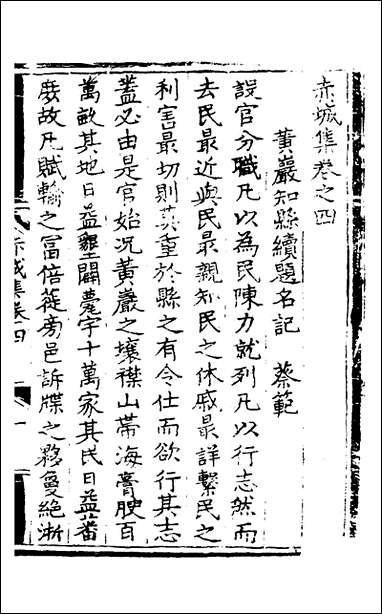 赤城集卷之四
黃巖知縣續題名記　蔡範
設官分職凡以為民陳力就列凡以行志然而
去民最近與民最親知民之休戚最詳繫民之
利害最切則莫重於縣之有令仕而欲行其志
蓋必由是官始況黃巖之壤襟山帶海膏腴百
萬畝其地日益墾闢甍宇十萬家其民日益蕃
庶故凡賦輸之冨倍蓰旁邑訴牒之夥敻絶浙
赤城集卷四
一